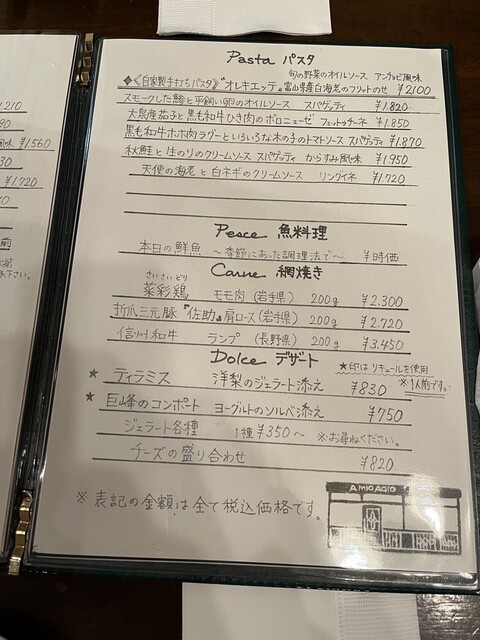 ,210
90
味 ¥1,560
30
¥1,720
70
前
下さい。
Pasta パスタ
旬の野菜のオイルソース アンチョビ風味
◆《自家製手打ちパスタ》"オレキエッテ" 富山県産白海老のフリットのせ ¥2100
スモークした鯵と平飼い卵のオイルソース スパゲッティ ¥1.820
大泉産茄子と黒毛和牛ひき肉のボロニェーゼ フェットゥチーネ ¥1.850
黒毛和牛ホホ肉ラグーといろいろな木の子のトマトソース スパゲッティ ¥1.870
秋鮭と生のりのクリームソース スパゲッティ からすみ風味 ¥1.950
天使の海老と白ネギのクリームソース リングイネ ¥1.720
Pesce 魚料理
本日の鮮魚 〜季節にあった調理法で〜 ¥時価
Carne 網焼き
さいさいどり
菜彩鶏 モモ肉 (岩手県) 200g ¥2.300
折爪三元豚『佐助』肩ロース(岩手県) 200g ¥2.720
信州和牛 ランプ (長野県) 200g ¥3.450
Dolce デザート
★印は リキュールを使用
★ ティラミス 洋梨のジェラート添え ¥830
※1人前です。
★ 巨峰のコンポート ヨーグルトのソルベ添え ¥750
ジェラート各種 1種 ¥350〜 ※お尋ねください。
チーズの盛り合わせ ¥820
※ 表記の金額は全て税込価格です。
AMICI AGIO